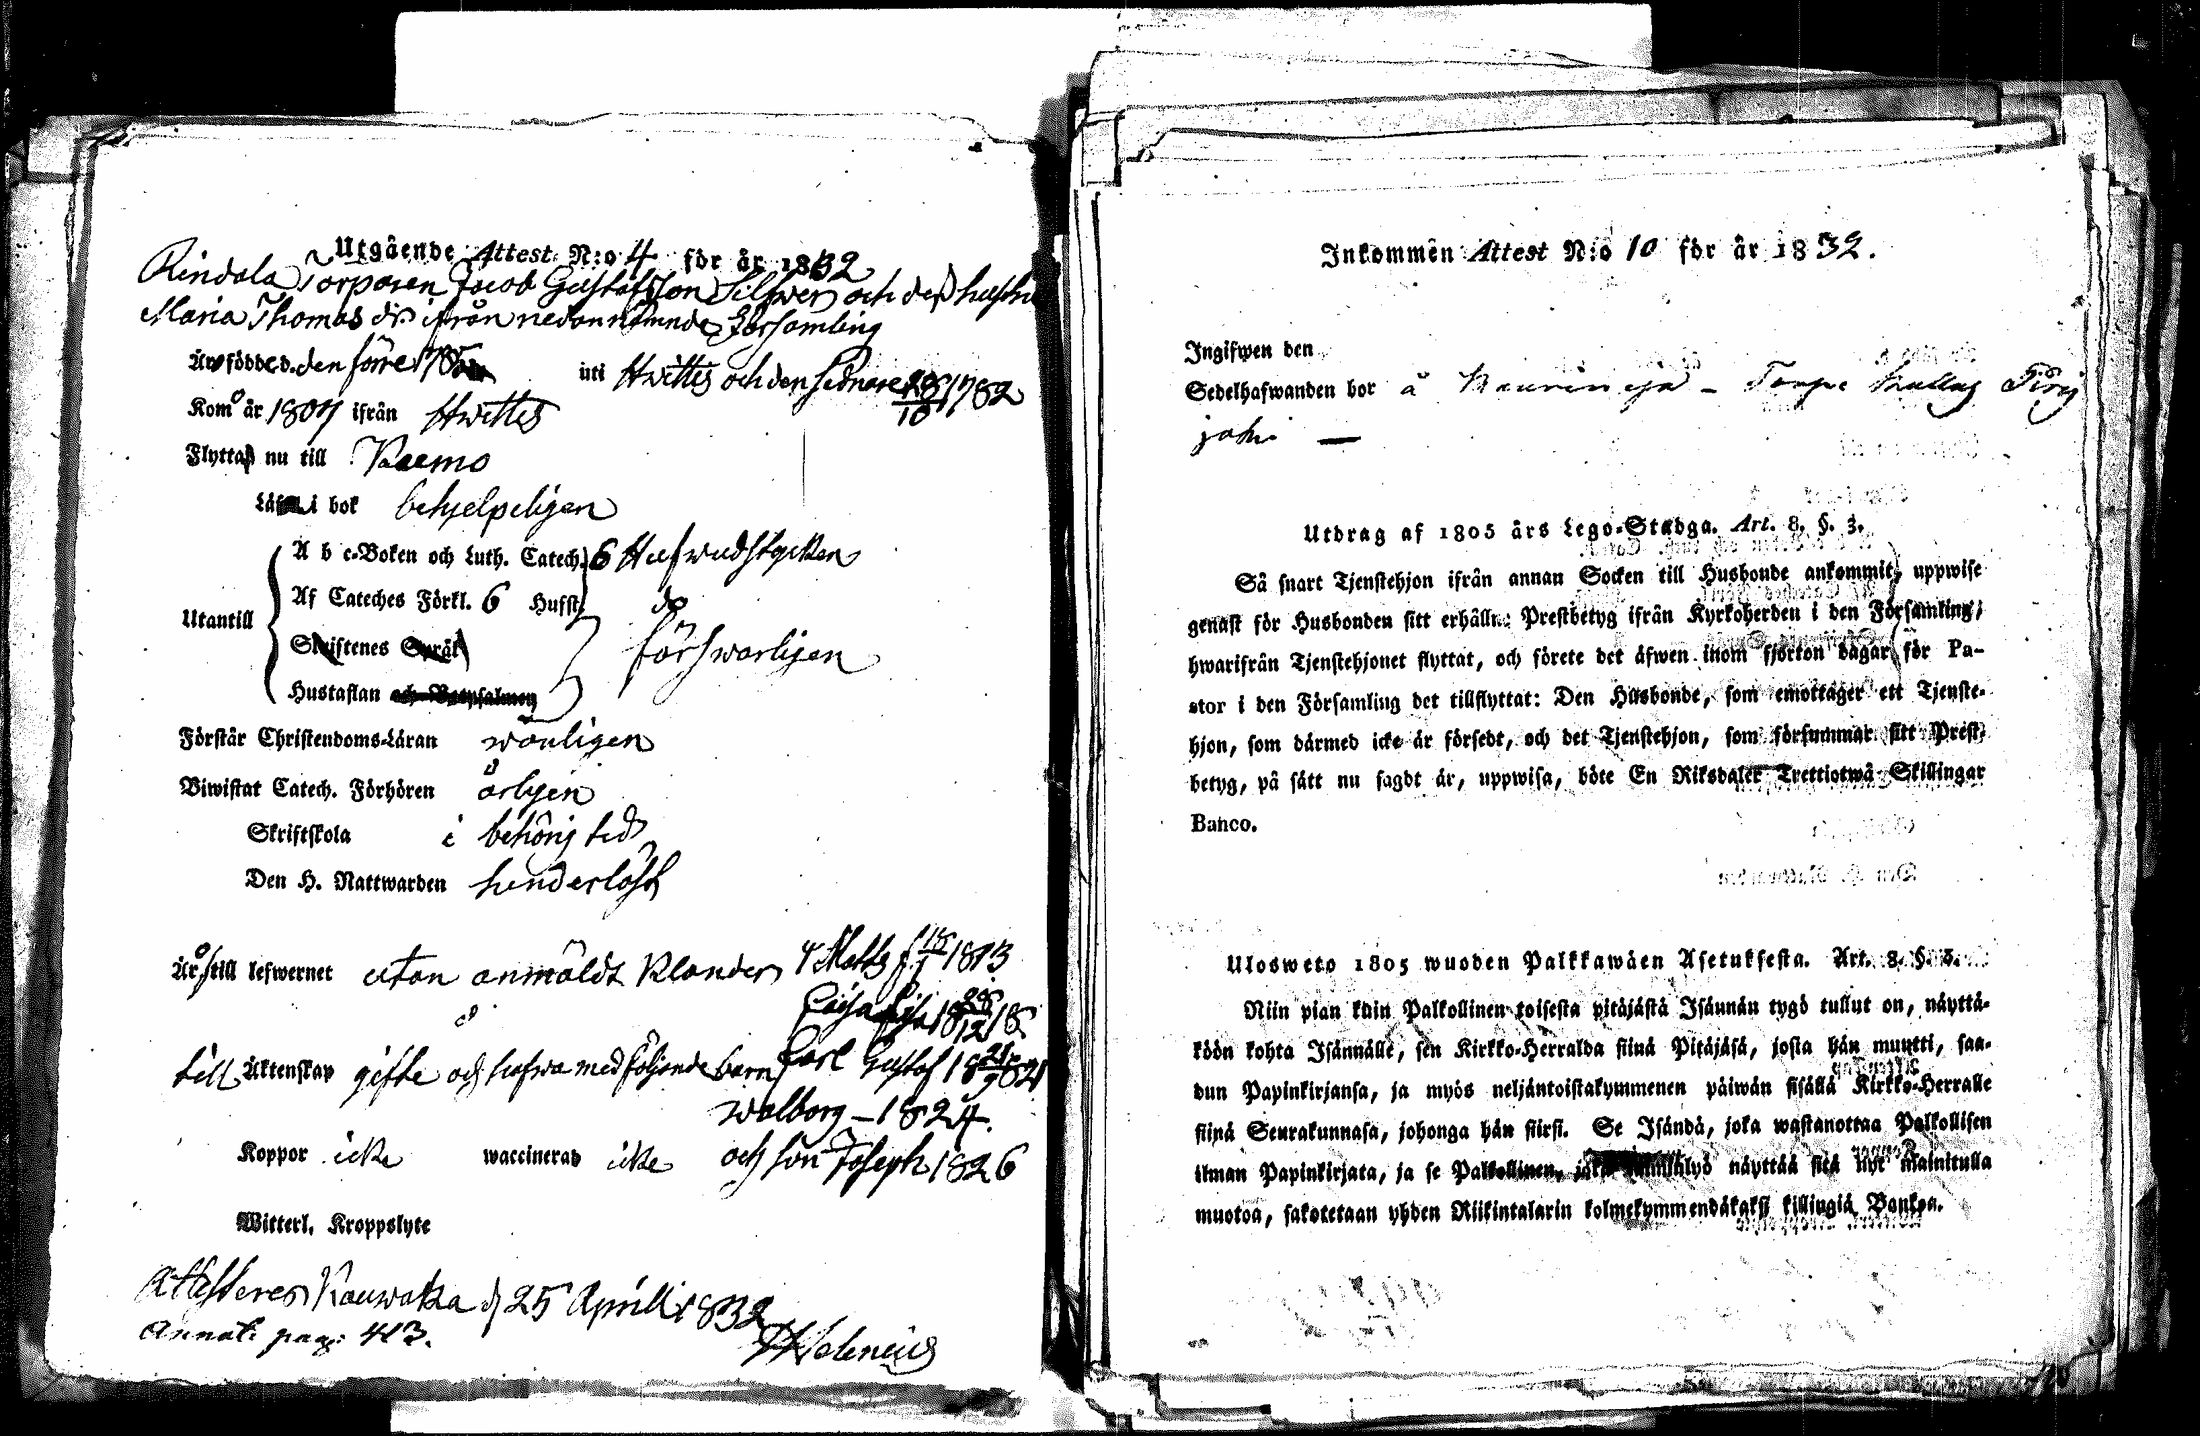 Utgående Attest N:o 4 för år 1832
Rindala Torparen Jacob Gustafsson Silfwer och dess hustru
Maria Thomas dr ifrån nedannämnde Församling
Äro födde d. den förre 178 uti Hwittis och den sednare 28/10 1782
Komo år 1807 ifrån Hwittis
Flyttar nu till Karmo
Läsa i bok behjelpeligen
A b c-Boken och Luth. Catech. 6 Hufwudstycken
Af Cateches Förkl. 6 Hufst. do
Utantill
Skriftenes Språk förswarligen
Hustaflan och Botpsalmen
Förstår Christendoms-Läran wanligen
Biwistat Catech. Förhören årligen
Skriftskola i behörig tid
Den H. Nattwarden hinderlöst
Äro till lefwernet utan anmäldt klander, Matts f. 1813
1818
till Äktenskap gifte och hafwa med följande barn Carl Gustaf 1821
Walborg – 1824.
Koppor icke waccinerad icke och son Joseph 1826
Witterl. Kroppslyte
Attesteres Kauwatsa d 25 April 1832
Annot: pag: 413. Salenius
Inkommen Attest N:o 10 för år 1832.
Ingifwen den
Sedelhafwanden bor å
johi —
Utdrag af 1805 års Lego-Stadga. Art. 8. §. 3.
Så snart Tjenstehjon ifrån annan Socken till Husbonde ankommit, uppwise
genast för Husbonden sitt erhålln: Prestbetyg ifrån Kyrkoherden i den Församling,
hwarifrån Tjenstehjonet flyttat, och förete det äfwen inom fjorton dagar för Pa-
stor i den Församling det tillflyttat: Den Husbonde, som emottager ett Tjenste-
hjon, som därmed icke är försedt, och det Tjenstehjon, som försummar sitt Prest-
betyg, på sätt nu sagdt är, uppwisa, böte En Riksdaler Trettiotwå Skillingar
Banco.
Ulosweto 1805 wuoden Palkkawäen Asetuksesta. Art. 8. §. 3.
Niin pian kuin Palkollinen toisesta pitäjästä Isännän tygö tullut on, näyttä-
köön kohta Isännälle, sen Kirkko-Herralda siinä Pitäjäsä, josta hän muutti, saa-
dun Papinkirjansa, ja myös neljäntoistakymmenen päiwän sisällä Kirkko-Herralle
siinä Seurakunnasa, johonga hän siirsi. Se Isändä, joka wastanottaa Palkollisen
ilman Papinkirjata, ja se Palkollinen, joka näyttää sitä nyt mainitulla
muotoa, sakotetaan yhden Riikintalarin kolmekymmendäkaksi killingiä Bankoa.